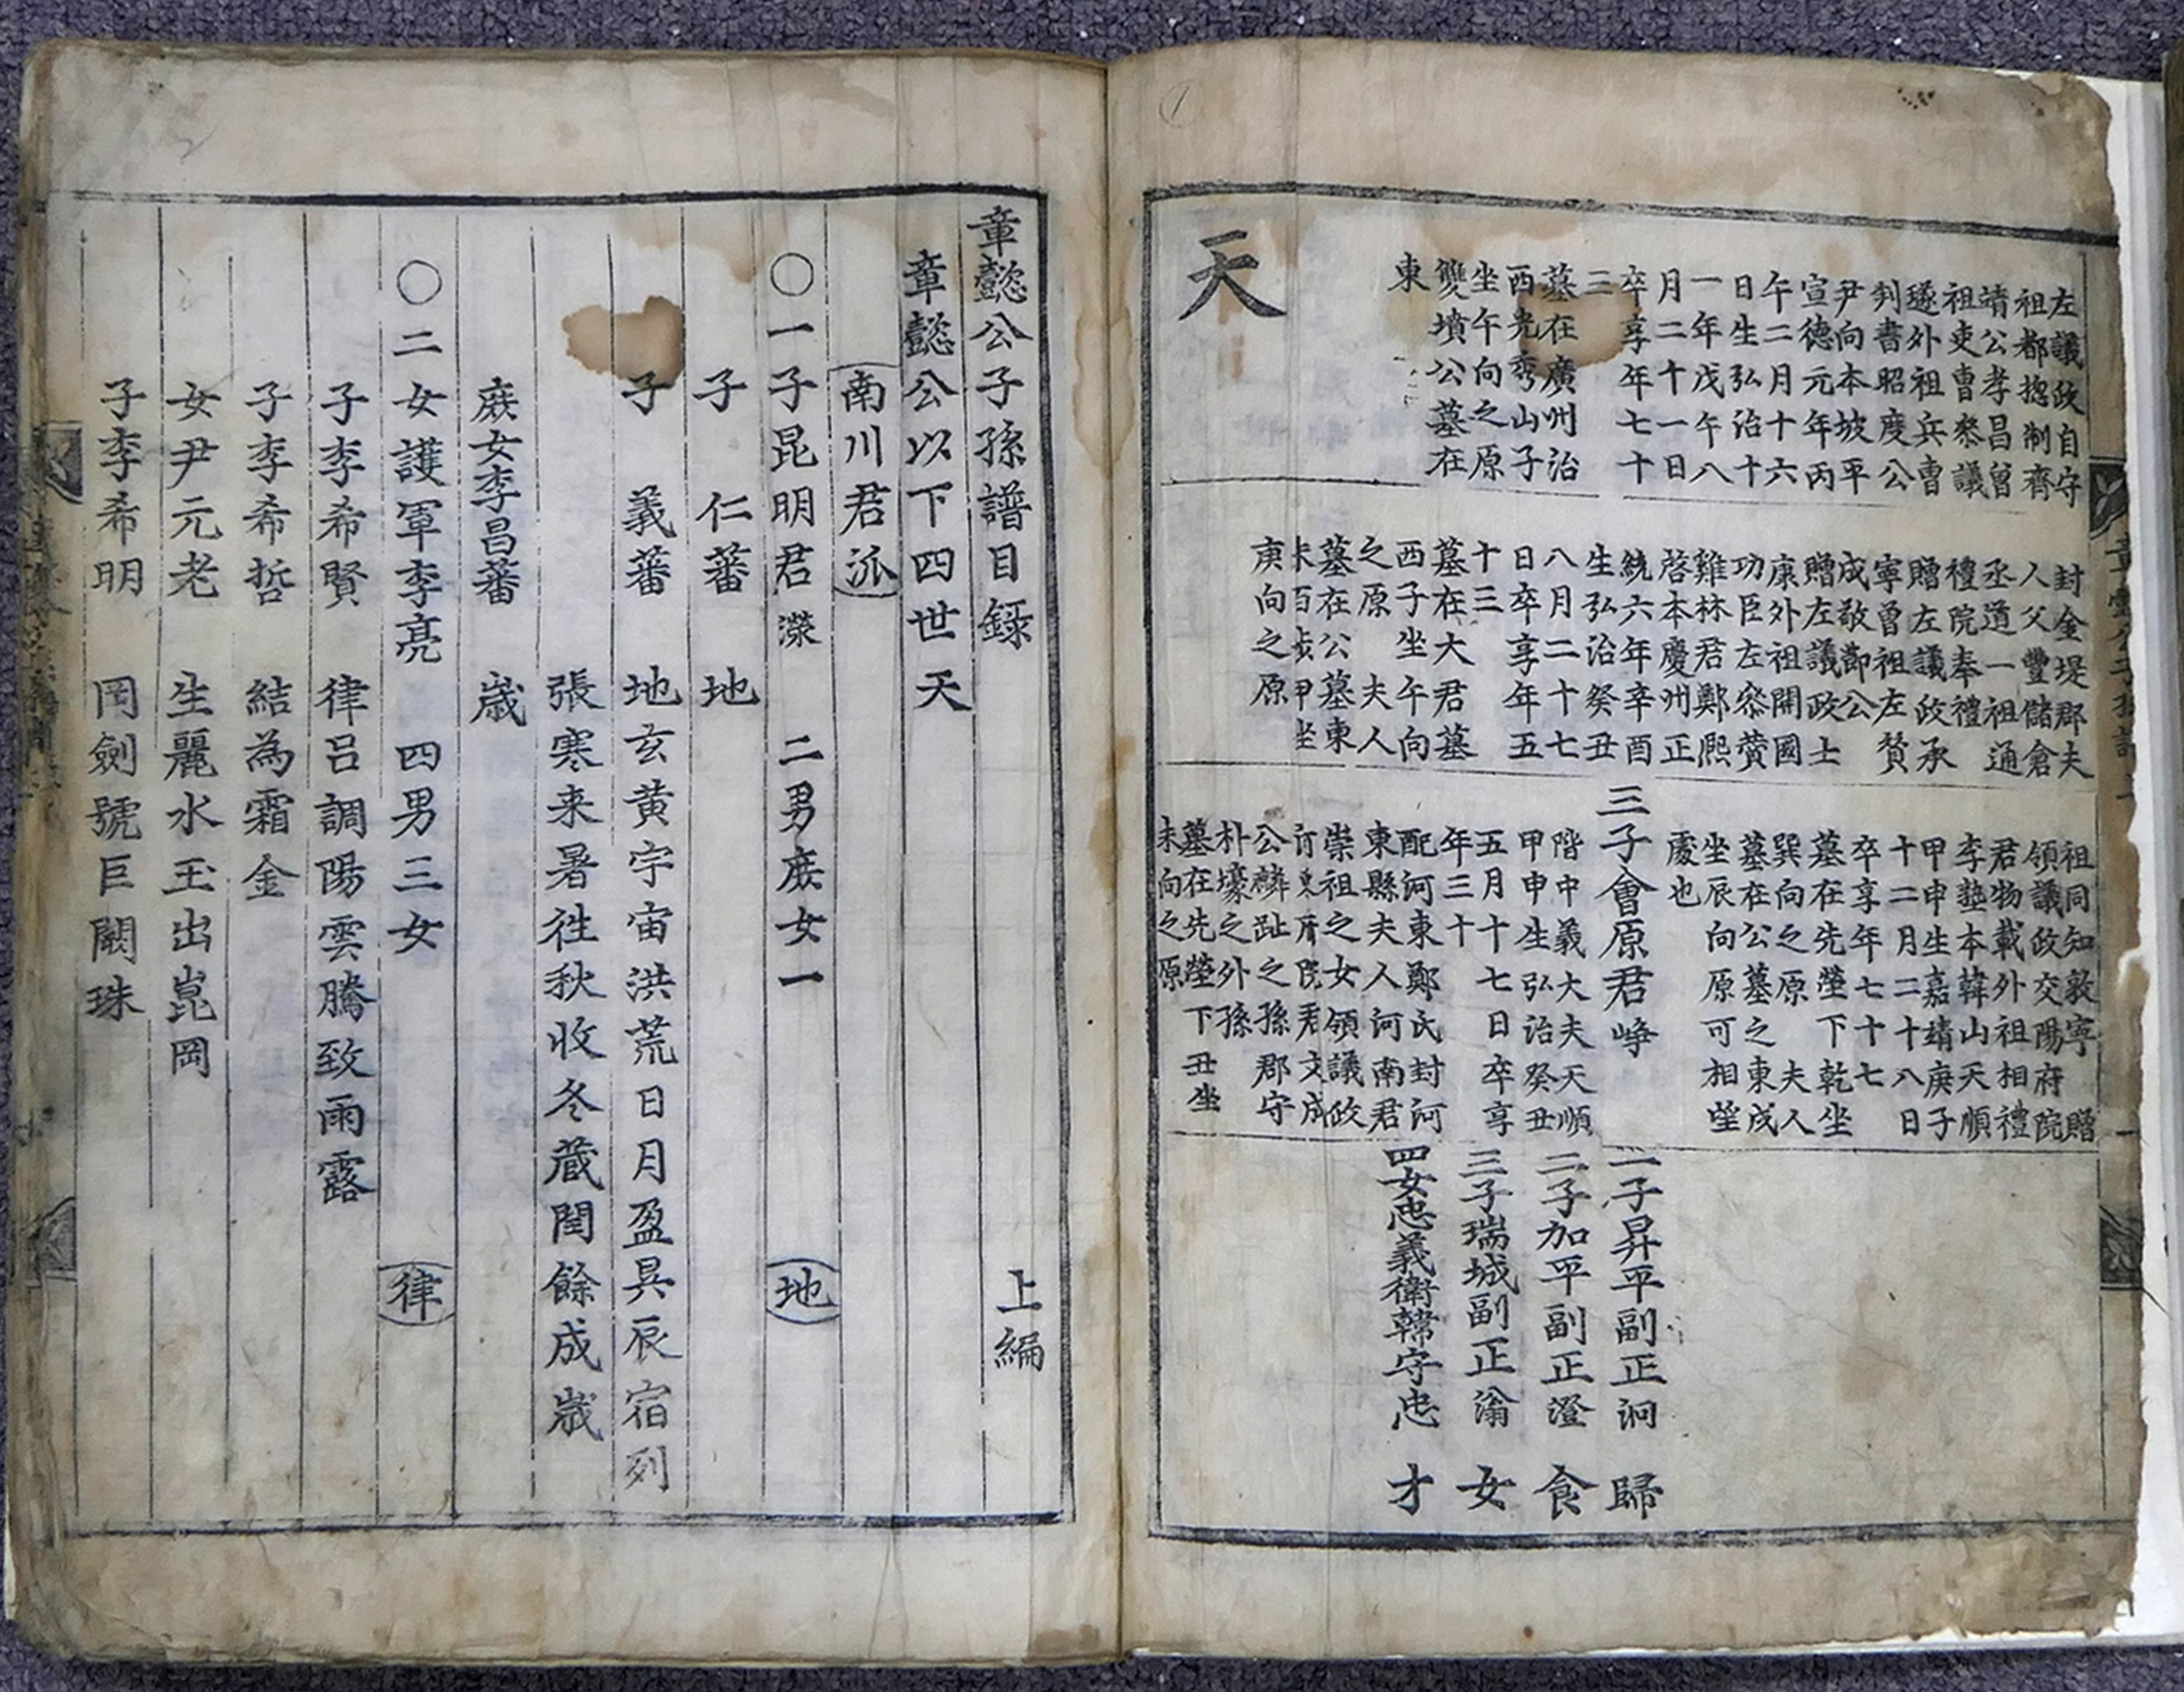 左議政自守
祖都摠制齊
靖公孝昌曾
祖吏曹叅議
遂外祖兵曹
判書昭度公
尹向本坡平
宣德元年丙
午二月十六
日生弘治十
一年戊午八
月二十一日
卒享年七十
三
墓在廣州治
西光秀山子
坐午向之原
雙墳公墓在
東
天
封金堤郡夫
人父豐儲倉
丞遒一祖通
禮院奉禮
贈左議政承
寧曾祖左贊
成敬節公
贈左議政士
康外祖開國
功臣左叅贊
雞林君鄭熙
啓本慶州正
統六年辛酉
生弘治癸丑
八月二十七
日卒享年五
十三
墓在大君墓
西子坐午向
之原 夫人
墓在公墓東
甲坐
庚向之原
祖同知敦寧 贈
領議政交陽府院
君物載外祖相禮
李塾本韓山天順
甲申生嘉靖庚子
十二月二十八日
卒享年七十七
墓在先塋下乾坐
巽向之原 夫人
墓在公墓之東戍
坐辰向原可相望
處也
三子會原君崢
階中義大夫天順
甲申生弘治癸丑
五月十七日卒享
年三十
配河東鄭氏封河
東縣夫人河南君
崇祖之女領議政
公麟趾之孫郡守
朴壕之外孫
墓在先塋下丑坐
未向之原
一子昇平副正泂 歸
二子加平副正澄 食
三子瑞城副正滃 女
四女忠義衛韓守忠 才
章懿公子孫譜目録 上編
章懿公以下四世 天
南川君派
○一子昆明君濚 二男庶女一 地
子 仁蕃 地
子 義蕃 地玄黄宇宙洪荒日月盈昃辰宿列
張寒来暑徃秋收冬蔵閏餘成歳
庶女李昌蕃 歳
○二女護軍李亮 四男三女 律
子李希賢 律呂調陽雲騰致雨露
子李希哲 結為霜金
女尹元老 生麗水玉出崑岡
子李希明 岡劍號巨闕珠